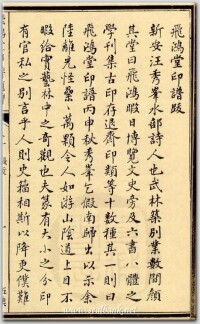 飛鴻堂印譜跋
新安汪秀峯水部詩人也武林築別業數間顏
其堂曰飛鴻暇日博覽文史旁及六書八體之
學刊集古印存退齋印類等十數種其一則曰
飛鴻堂印譜丙申秋秀峯乞假南歸出以示余
陸離光怪萬顆令人如游山陰道上目不
暇給實藝林中之奇觀也夫篆有大小之分印
有官私之別言乎人則史籀相斯以降更僕難